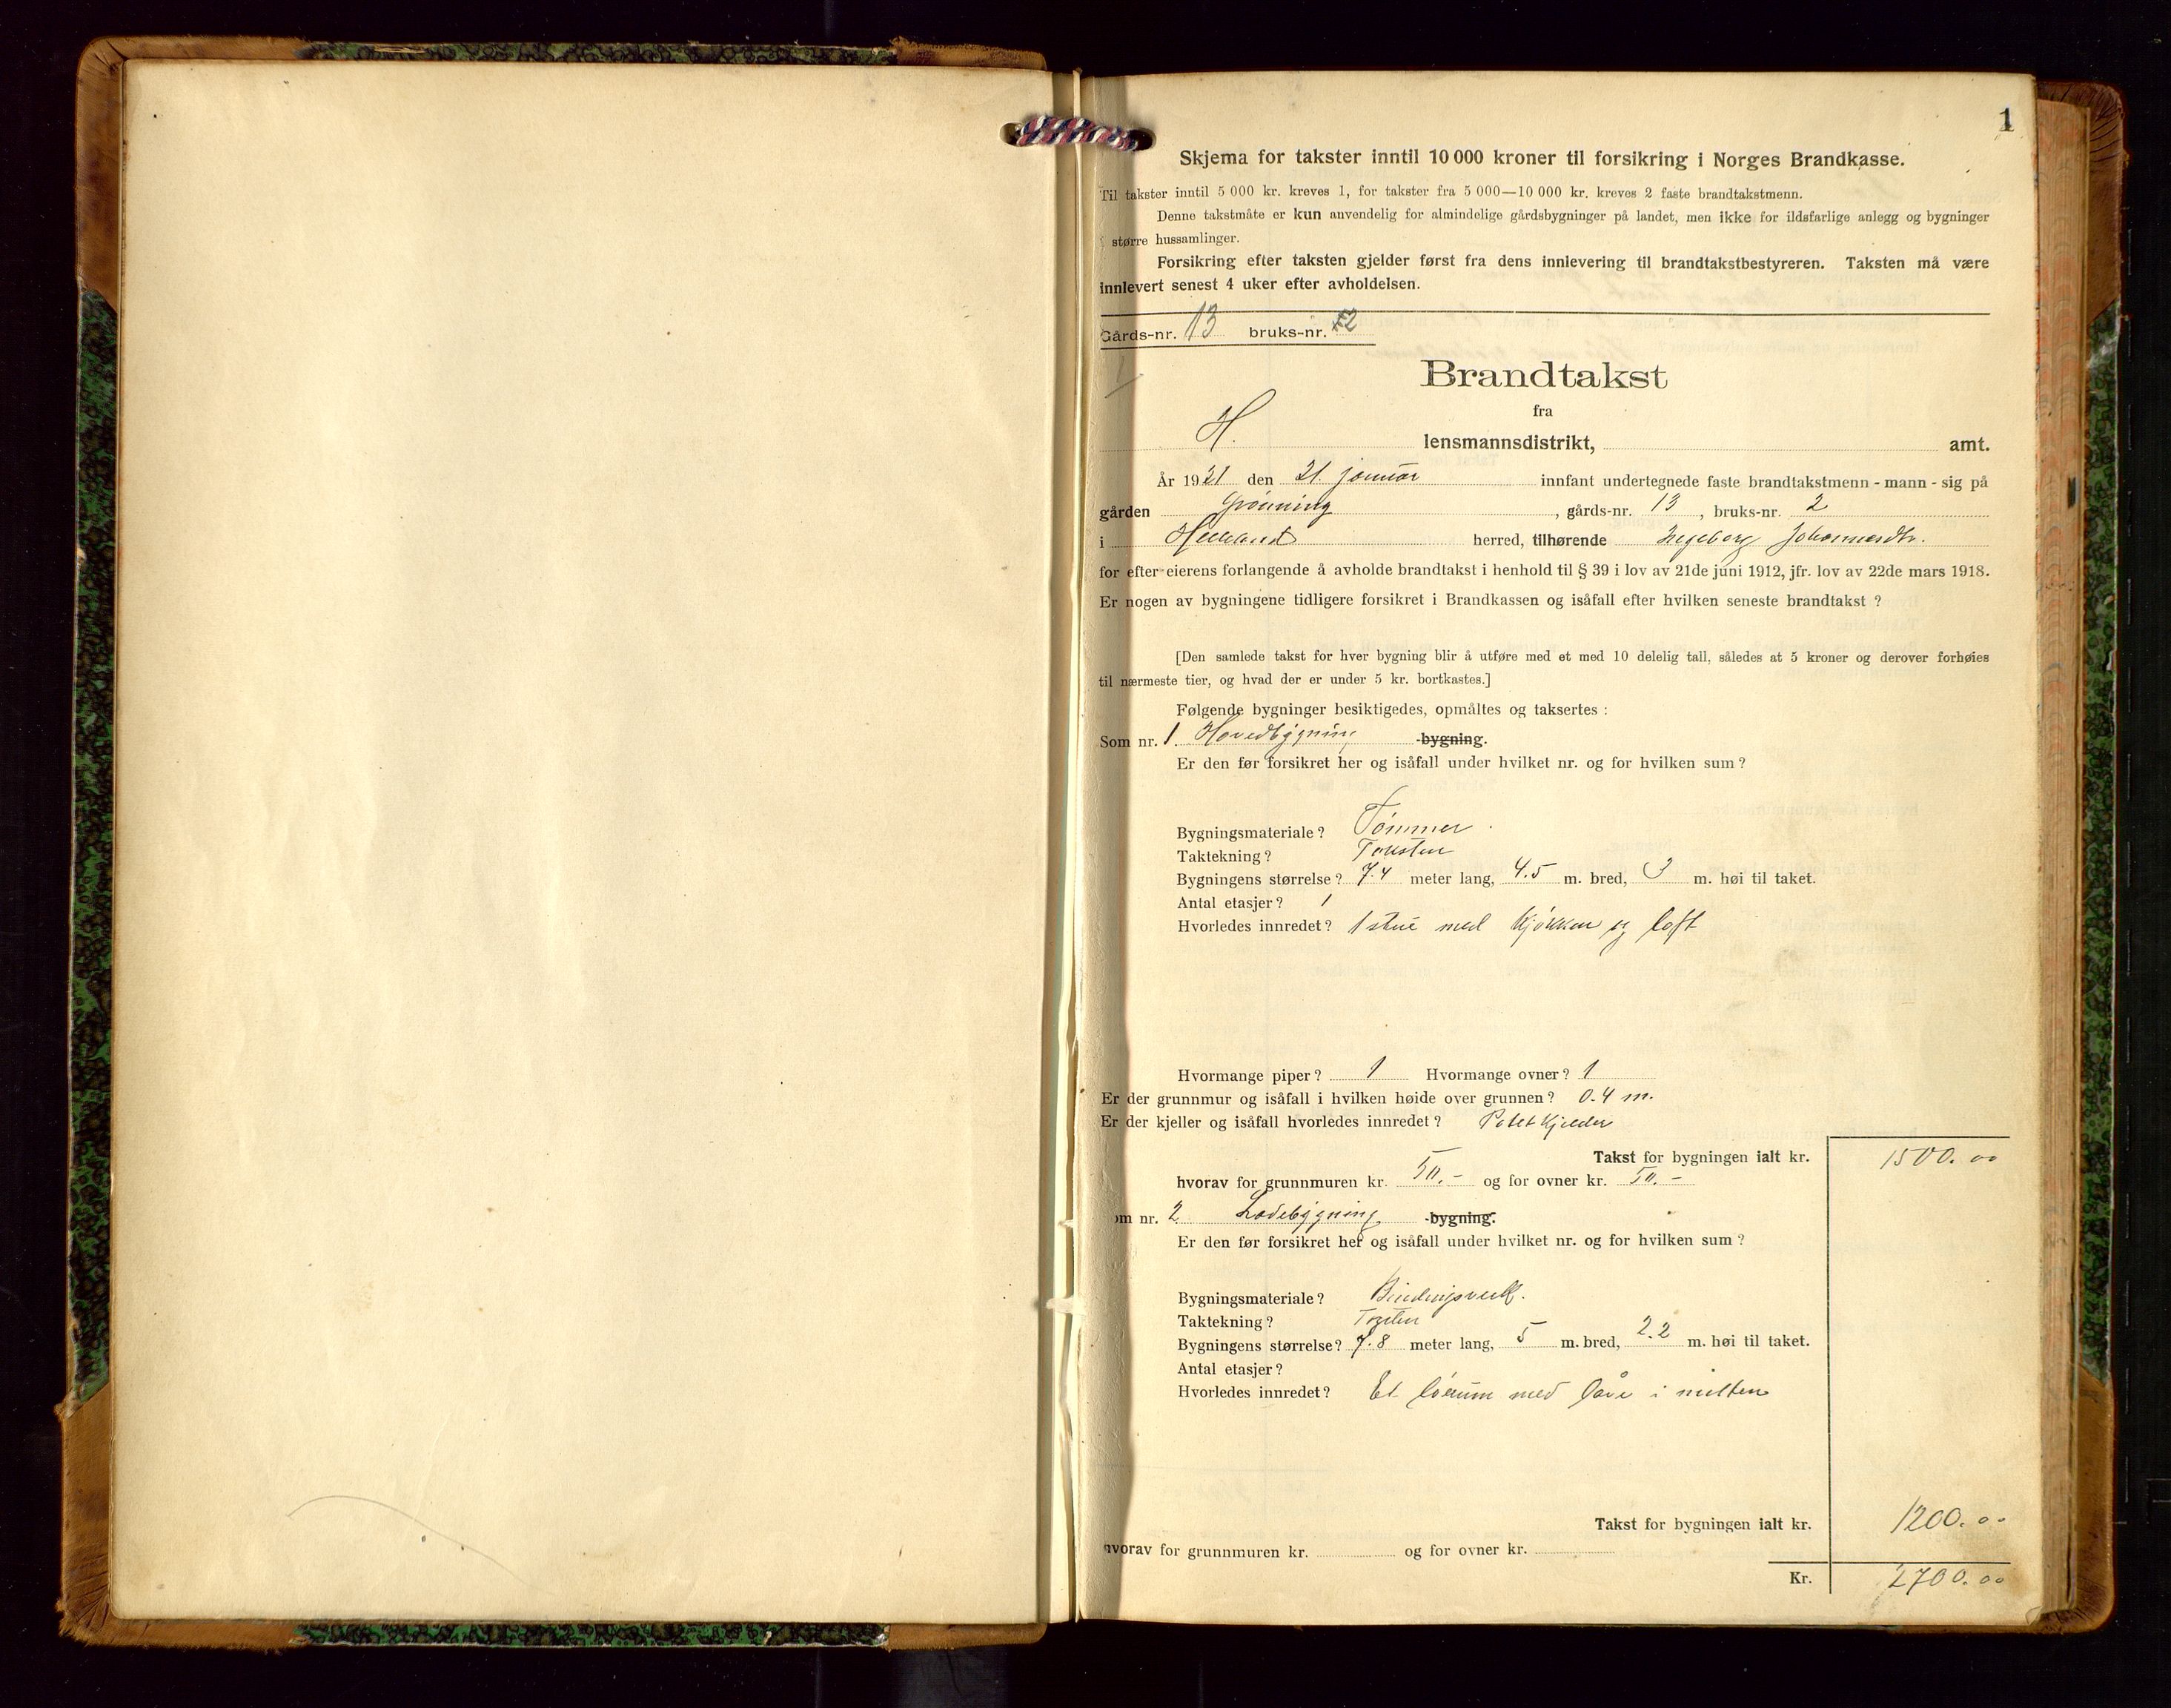 1
Skjema for takster inntil 10 000 kroner til forsikring i Norges Brandkasse.
Til takster inntil 5 000 kr. kreves 1, for takster fra 5 000—10 000 kr. kreves 2 faste brandtakstmenn.
Denne takstmåte er kun anvendelig for almindelige gårdsbygninger på landet, men ikke for ildsfarlige anlegg og bygninger
i større hussamlinger.
Forsikring efter taksten gjelder først fra dens innlevering til brandtakstbestyreren. Taksten må være
innlevert senest 4 uker efter avholdelsen.
Gårds-nr. 13 bruks-nr. 2
Brandtakst
fra
H. lensmannsdistrikt, amt.
År 1921 den 21. januar innfant undertegnede faste brandtakstmenn - mann - sig på
gården Grønning, gårds-nr. 13, bruks-nr. 2
i Helleland herred, tilhørende Ingeborg Johannesdtr.
for efter eierens forlangende å avholde brandtakst i henhold til § 39 i lov av 21de juni 1912, jfr. lov av 22de mars 1918.
Er nogen av bygningene tidligere forsikret i Brandkassen og isåfall efter hvilken seneste brandtakst?
[Den samlede takst for hver bygning blir å utføre med et med 10 delelig tall, således at 5 kroner og derover forhøies
til nærmeste tier, og hvad der er under 5 kr. bortkastes.]
Følgende bygninger besiktigedes, opmåltes og taksertes:
Som nr. 1. Hovedbygning -bygning.
Er den før forsikret her og isåfall under hvilket nr. og for hvilken sum?
Bygningsmateriale? Tømmer.
Taktekning? Taksten
Bygningens størrelse? 7.4 meter lang, 4.5 m. bred, 3 m. høi til taket.
Antal etasjer? 1
Hvorledes innredet? 1 stue med kjøkken og loft
Hvormange piper? 1 Hvormange ovner? 1
Er der grunnmur og isåfall i hvilken høide over grunnen? 0.4 m.
Er der kjeller og isåfall hvorledes innredet? Potetkjelder
Takst for bygningen ialt kr. 1500.00
hvorav for grunnmuren kr. 50.- og for ovner kr. 50.-
om nr. 2 Ladebygning -bygning.
Er den før forsikret her og isåfall under hvilket nr. og for hvilken sum?
Bygningsmateriale? Bindingsverk.
Taktekning?
Bygningens størrelse? 7.8 meter lang, 5 m. bred, 2.2 m. høi til taket.
Antal etasjer?
Hvorledes innredet? Et med låve i mitten
Takst for bygningen ialt kr. 1200.00
hvorav for grunnmuren kr. og for ovner kr.
Kr. 2700.00